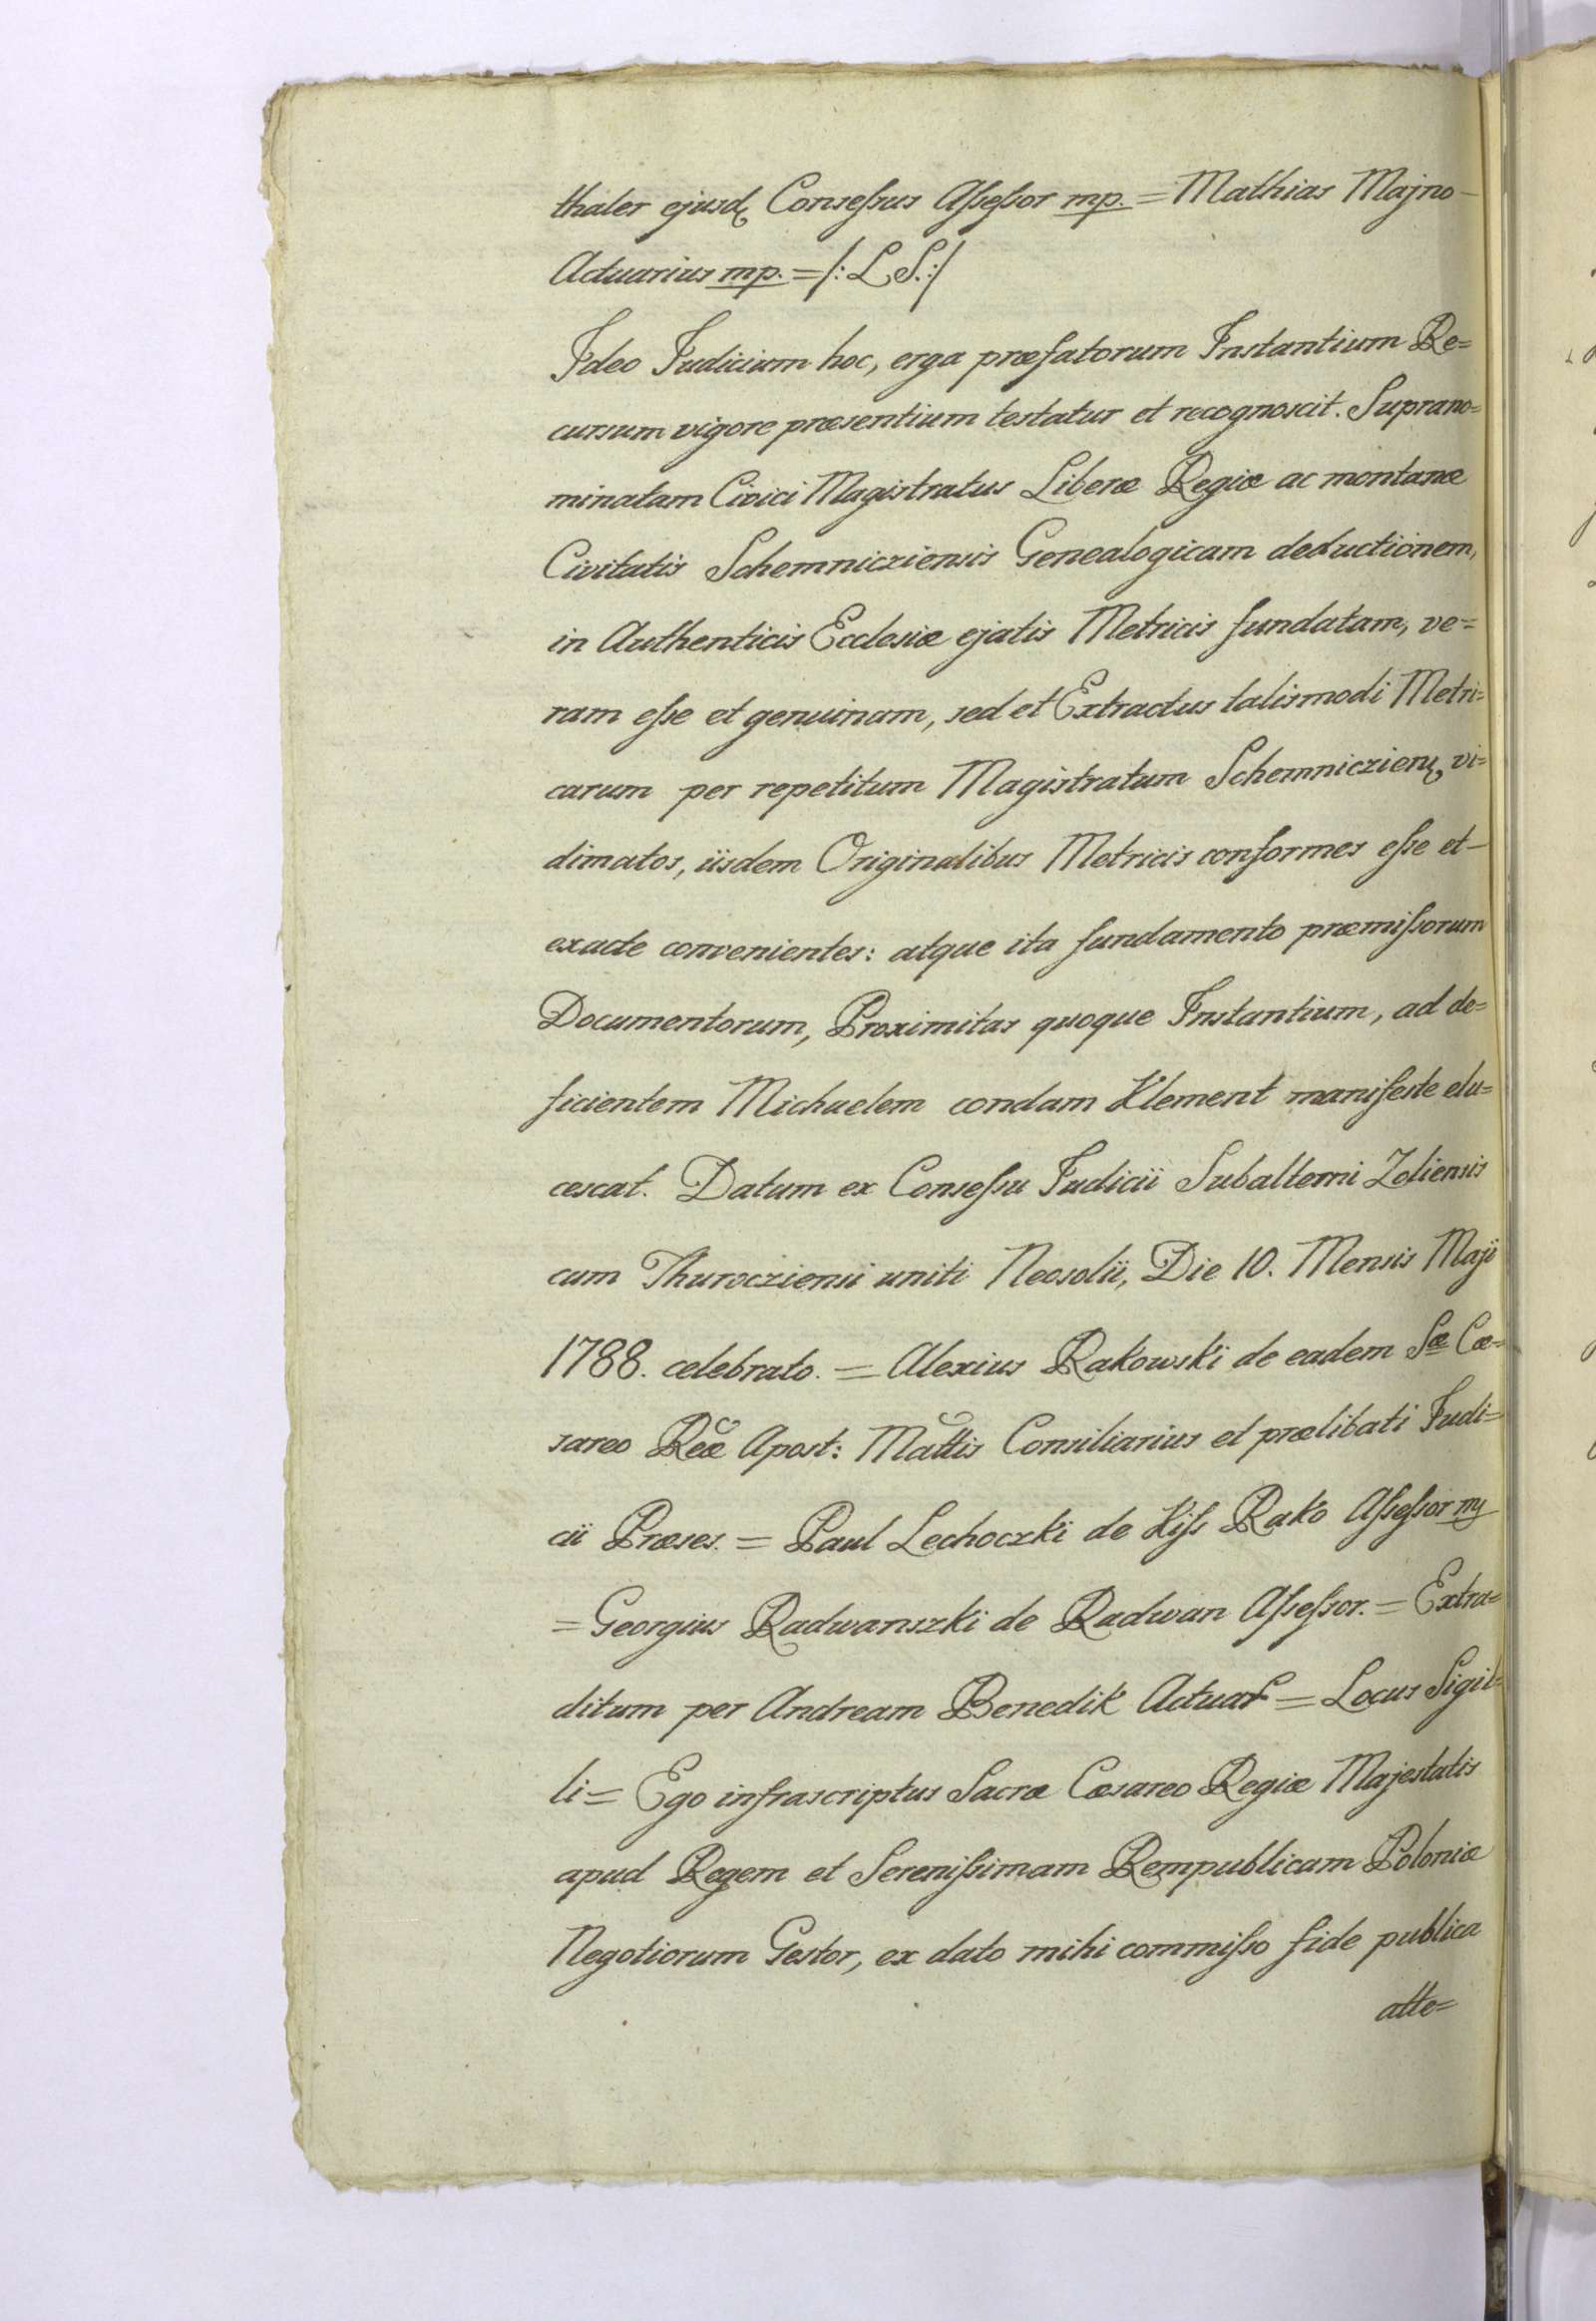 thaler ejusd, Consessus Assessor mp. = Mathias Majno-
Actuarius mp. = /: L S.:/
Ideo Iudicium hoc, erga præfatorum Instantium Re=
cursum vigore præsentium testatur et recognoscit. Suprano=
minatam Civici Magistratus Liberæ Regiæ ac montanæ
Civitatis Schemnicziensis Genealogicam deductionem,
in Authenticis Ecclesiæ ejatis Metricis fundatam, ve=
ram esse et genuinam, sed et Extractus talismodi Metri=
carum per repetitum Magistratum Schemnicziens, vi=
dimatos, iisdem Originalibus Metricis conformes esse et-
exacte convenientes: atque ita fundamento præmissorum
Documentorum, Proximitas quoque Instantium, ad de=
ficientem Michaelem condam Klement manifeste elu=
cescat. Datum ex Consessu Iudicii Subalterni Zoliensis
cum Thurocziensi uniti Neosolii, Die 10. Mensis Maji
1788. celebrato. = Alexius Rakowski de eadem Sæ Cæ=
sareo Reæ Apost: Mattis Consiliarius et prælibati Iudi=
cii Præses. = Paul Lechoczki de Kiss Rako Assessor mp
= Georgius Radwanszki de Radwan Assessor. = Extra=
ditum per Andream Benedik Actuar = Locus Sigil=
li = Ego infrascriptus Sacræ Cæsareo Regiæ Majestatis
apud Regem et Serenissimam Rempublicam Poloniæ
Negotiorum Gestor, ex dato mihi commisso fide publica
atte=